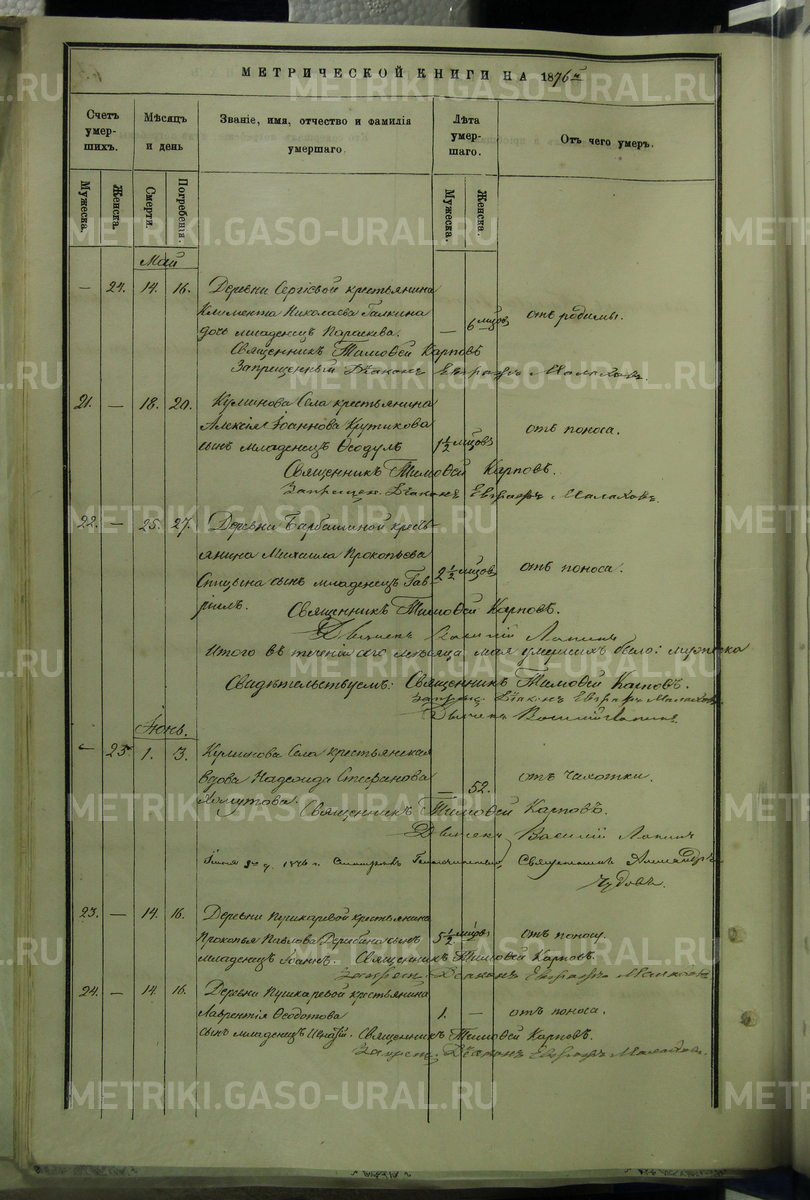 МЕТРИЧЕСКОЙ КНИГИ НА 1876й
Счетъ умер-шихъ.
Мѣсяцъ и день
Званіе, имя, отчество и фамилія умершаго.
Лѣта умер-шаго.
Отъ чего умеръ.
Мужеска.
Женска.
Смерти.
Погребенія.
Мужеска.
Женска.
Май
— 24. 14. 16. Деревни Сергіевой крестьянина
Климента Николаева Галкина
дочь младенецъ Параскева. — 6 мцовъ отъ родимы.
Священникъ Тимоѳей Карповъ
Запрещенный Діаконъ Евграфъ Малаховъ.
21. — 18. 20. Куминова Села крестьянина
Алексія Іоаннова Крутикова
сынъ младенецъ Ѳеодулъ 1½ мцовъ отъ поноса.
Священникъ Тимоѳей Карповъ.
Запрещен. Діаконъ Евграфъ Малаховъ.
22. — 25. 27. Деревни Барбашиной кресть-
янина Михаила Прокопьева
Спицына сынъ младенецъ Гав- 2½ мцовъ отъ поноса.
ріилъ. Священникъ Тимоѳей Карповъ.
Дьячекъ Василій Лапинъ
Итого въ теченіи сего мѣсяца мая умершихъ было: мужеска
Свидѣтельствуемъ: Священникъ Тимоѳей Карповъ.
Запрещ. Діаконъ Евграфъ Малаховъ
Дьячекъ Василій Лапинъ
Іюнь.
— 25 1. 3. Куминова Села крестьянская
вдова Надежда Стефанова — 52. отъ чахотки.
Хомутова. Священникъ Тимоѳей Карповъ.
Дьячекъ Василій Лапинъ
Іюня 1876 г. Священникъ Александръ
Чудовъ.
23. — 14. 16. Деревни Пушкаревой крестьянина
Прокопья Павлова сынъ 5½ мцовъ отъ поносу.
младенецъ Іоаннъ. Священникъ Тимоѳей Карповъ.
Запрещ. Діаконъ Евграфъ Малаховъ
24. — 14. 16. Деревни Пушкаревой крестьянина
Лаврентія Ѳеодотова 1. — отъ поноса.
сынъ младенецъ Священникъ Тимоѳей Карповъ.
Запрещ. Діаконъ Евграфъ Малаховъ.
METRIKI.GASO-URAL.RU